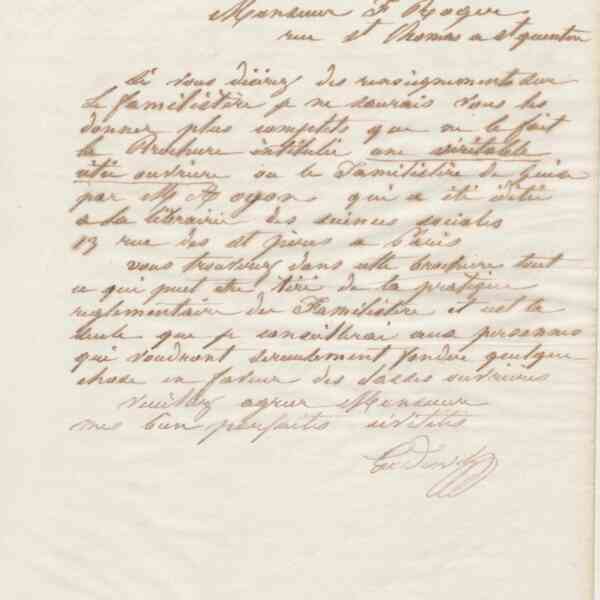 Monsieur F Roger
rue St Thomas a St quentin
Si vous désirez des renseignements sur
le familistère je ne saurais vous les
donner plus complets que ne le fait
la Brochure intitulée une véritable
cité ouvrière ou le Familistère de Guise
par M A Oyon qui a été éditée
a la librairie des sciences sociales
13 rue des St pères a Paris
vous trouverez dans cette brochure tout
ce qui peut être tiré de la pratique
reglementaire du Familistère et c'est la
seule que je conseillerai aux personnes
qui voudront seroulement fonder quelque
chose en faveur des classes ouvrières
veuillez agréer Monsieur
mes bien parfaites civilités
Godin